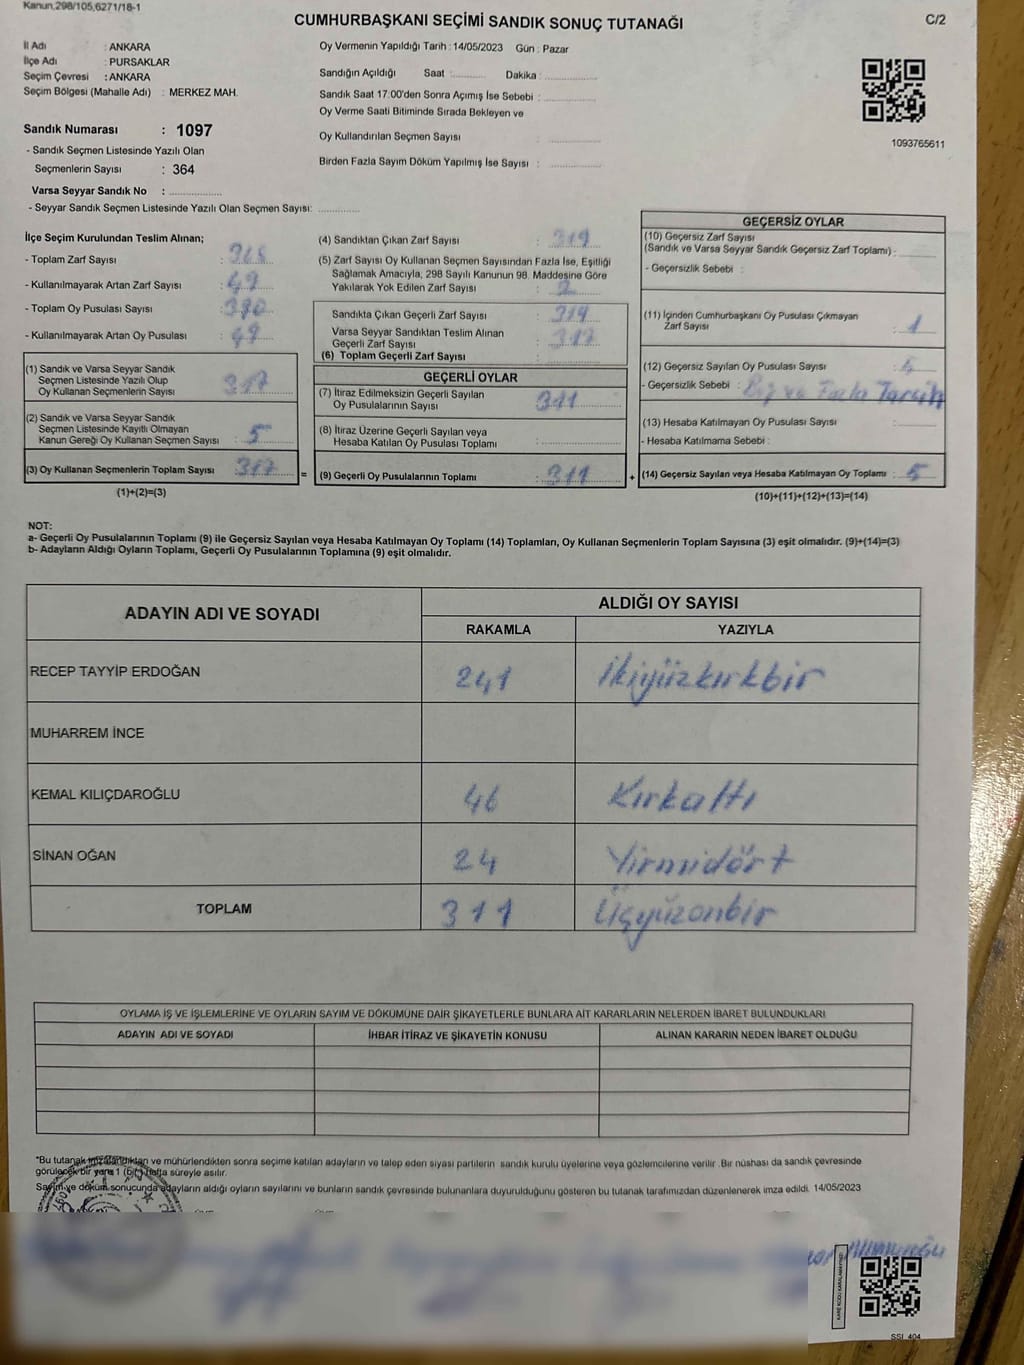 Kanun,298/105,6271/18-1
CUMHURBAŞKANI SEÇİMİ SANDIK SONUÇ TUTANAĞI
C/2
İl Adı : ANKARA
İlçe Adı : PURSAKLAR
Seçim Çevresi : ANKARA
Seçim Bölgesi (Mahalle Adı) : MERKEZ MAH.
Sandık Numarası : 1097
- Sandık Seçmen Listesinde Yazılı Olan
Seçmenlerin Sayısı : 364
Varsa Seyyar Sandık No : ............
- Seyyar Sandık Seçmen Listesinde Yazılı Olan Seçmen Sayısı: ............
Oy Vermenin Yapıldığı Tarih : 14/05/2023 Gün : Pazar
Sandığın Açıldığı Saat : ............ Dakika : ............
Sandık Saat 17:00'den Sonra Açımış İse Sebebi : ............
Oy Verme Saati Bitiminde Sırada Bekleyen ve
Oy Kullandırılan Seçmen Sayısı : ............
Birden Fazla Sayım Döküm Yapılmış İse Sayısı : ............
1093765611
İlçe Seçim Kurulundan Teslim Alınan;
- Toplam Zarf Sayısı :
- Kullanılmayarak Artan Zarf Sayısı : 49
- Toplam Oy Pusulası Sayısı :
- Kullanılmayarak Artan Oy Pusulası : 49
(1) Sandık ve Varsa Seyyar Sandık
Seçmen Listesinde Yazılı Olup
Oy Kullanan Seçmenlerin Sayısı : 317
(2) Sandık ve Varsa Seyyar Sandık
Seçmen Listesinde Kayıtlı Olmayan
Kanun Gereği Oy Kullanan Seçmen Sayısı : 5
(3) Oy Kullanan Seçmenlerin Toplam Sayısı : 317
(1)+(2)=(3)
(4) Sandıktan Çıkan Zarf Sayısı : 319
(5) Zarf Sayısı Oy Kullanan Seçmen Sayısından Fazla İse, Eşitliği
Sağlamak Amacıyla, 298 Sayılı Kanunun 98. Maddesine Göre
Yakılarak Yok Edilen Zarf Sayısı : 2
Sandıkta Çıkan Geçerli Zarf Sayısı : 319
Varsa Seyyar Sandıktan Teslim Alınan
Geçerli Zarf Sayısı : 317
(6) Toplam Geçerli Zarf Sayısı :
GEÇERLİ OYLAR
(7) İtiraz Edilmeksizin Geçerli Sayılan
Oy Pusulalarının Sayısı : 311
(8) İtiraz Üzerine Geçerli Sayılan veya
Hesaba Katılan Oy Pusulası Toplamı :
(9) Geçerli Oy Pusulalarının Toplamı : 311
GEÇERSİZ OYLAR
(10) Geçersiz Zarf Sayısı
(Sandık ve Varsa Seyyar Sandık Geçersiz Zarf Toplamı) :
- Geçersizlik Sebebi :
(11) İçinden Cumhurbaşkanı Oy Pusulası Çıkmayan
Zarf Sayısı : 1
(12) Geçersiz Sayılan Oy Pusulası Sayısı :
- Geçersizlik Sebebi : ve Fazla
(13) Hesaba Katılmayan Oy Pusulası Sayısı :
- Hesaba Katılmama Sebebi :
(14) Geçersiz Sayılan veya Hesaba Katılmayan Oy Toplamı : 5
(10)+(11)+(12)+(13)=(14)
NOT:
a- Geçerli Oy Pusulalarının Toplamı (9) ile Geçersiz Sayılan veya Hesaba Katılmayan Oy Toplamı (14) Toplamları, Oy Kullanan Seçmenlerin Toplam Sayısına (3) eşit olmalıdır. (9)+(14)=(3)
b- Adayların Aldığı Oyların Toplamı, Geçerli Oy Pusulalarının Toplamına (9) eşit olmalıdır.
ADAYIN ADI VE SOYADI
ALDIĞI OY SAYISI
RAKAMLA YAZIYLA
RECEP TAYYİP ERDOĞAN 241 İkiyüzkırkbir
MUHARREM İNCE
KEMAL KILIÇDAROĞLU 46 Kırkaltı
SİNAN OĞAN 24 Yirmidört
TOPLAM 311 Üçyüzonbir
OYLAMA İŞ VE İŞLEMLERİNE VE OYLARIN SAYIM VE DÖKÜMÜNE DAİR ŞİKAYETLERLE BUNLARA AİT KARARLARIN NELERDEN İBARET BULUNDUKLARI
ADAYIN ADI VE SOYADI İHBAR İTİRAZ VE ŞİKAYETİN KONUSU ALINAN KARARIN NEDEN İBARET OLDUĞU
*Bu tutanak imzalandıktan ve mühürlendikten sonra seçime katılan adayların ve talep eden siyasi partilerin sandık kurulu üyelerine veya gözlemcilerine verilir .Bir nüshası da sandık çevresinde
görülecek bir yere 1 (bir) hafta süreyle asılır.
Sayım ve döküm sonucunda adayların aldığı oyların sayılarını ve bunların sandık çevresinde bulunanlara duyurulduğunu gösteren bu tutanak tarafımızdan düzenlenerek imza edildi. 14/05/2023
SSI_404